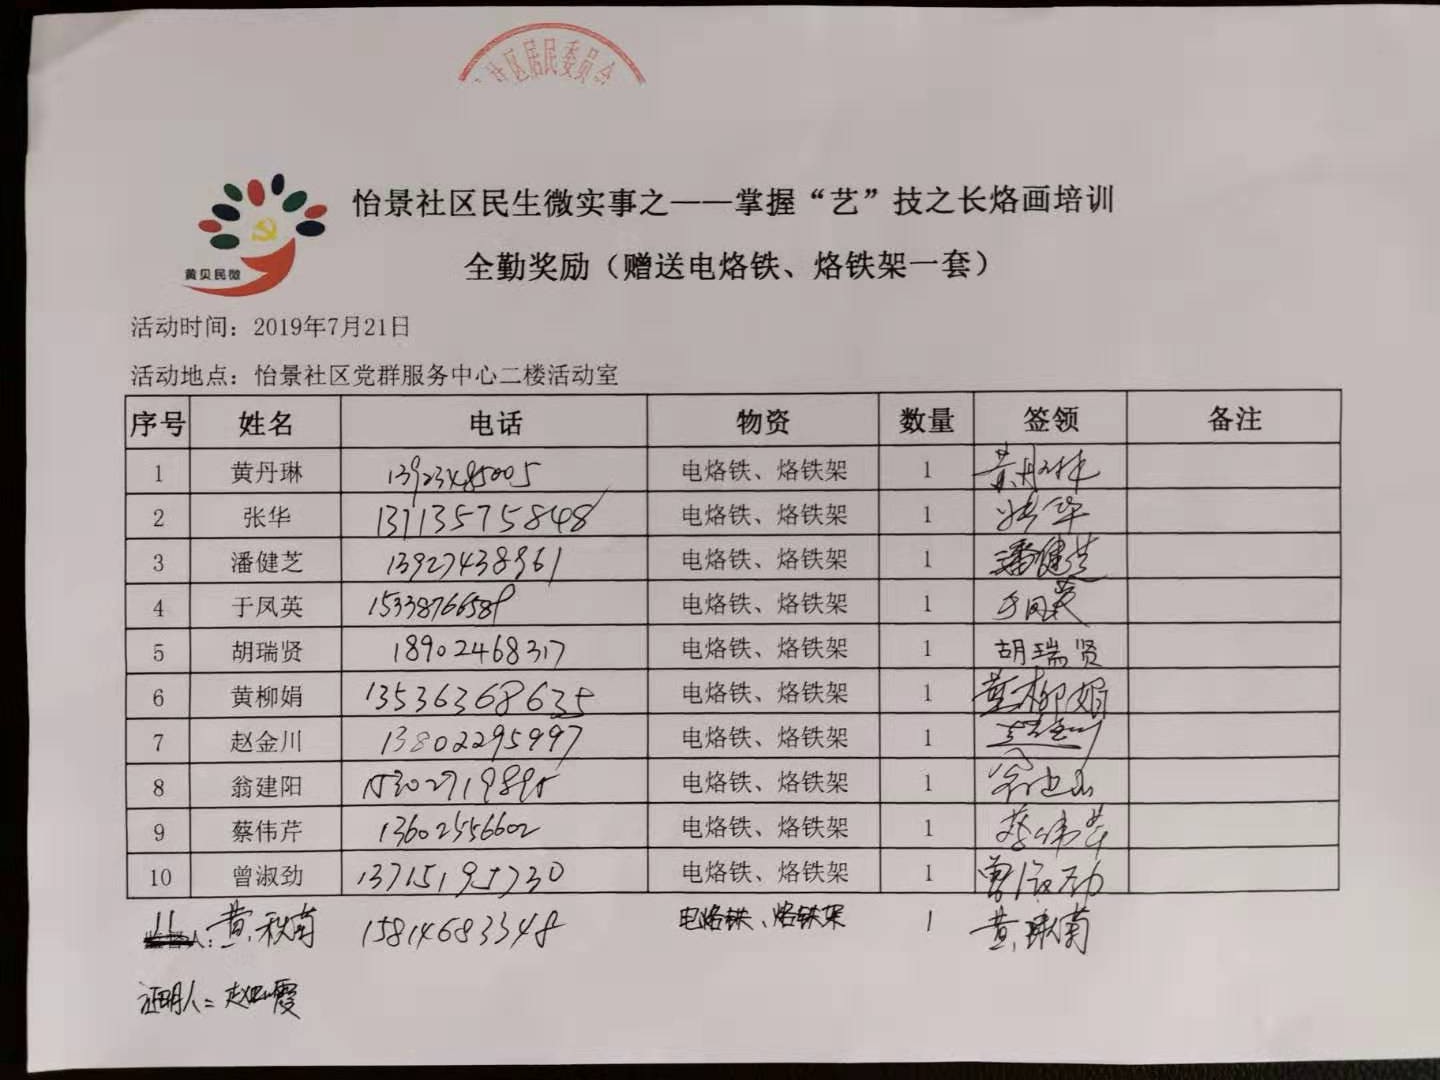 社区居民委员会
黄贝民微
怡景社区民生微实事之——掌握“艺”技之长烙画培训
全勤奖励（赠送电烙铁、烙铁架一套）
活动时间：2019年7月21日
活动地点：怡景社区党群服务中心二楼活动室
序号 姓名 电话 物资 数量 签领 备注
1 黄丹琳 13923485005 电烙铁、烙铁架 1 黄丹琳
2 张华 13713575848 电烙铁、烙铁架 1 张华
3 潘健芝 13927438961 电烙铁、烙铁架 1 潘健芝
4 于凤英 15338766589 电烙铁、烙铁架 1 于凤英
5 胡瑞贤 18902468317 电烙铁、烙铁架 1 胡瑞贤
6 黄柳娟 13536368635 电烙铁、烙铁架 1 黄柳娟
7 赵金川 13802295997 电烙铁、烙铁架 1 赵金川
8 翁建阳 15302719895 电烙铁、烙铁架 1
9 蔡伟芹 13602556602 电烙铁、烙铁架 1 蔡伟芹
10 曾淑劲 13715195730 电烙铁、烙铁架 1 曾淑劲
11 黄秋南 15814683348 电烙铁、烙铁架 1 黄秋南
人：
证明人：赵霞